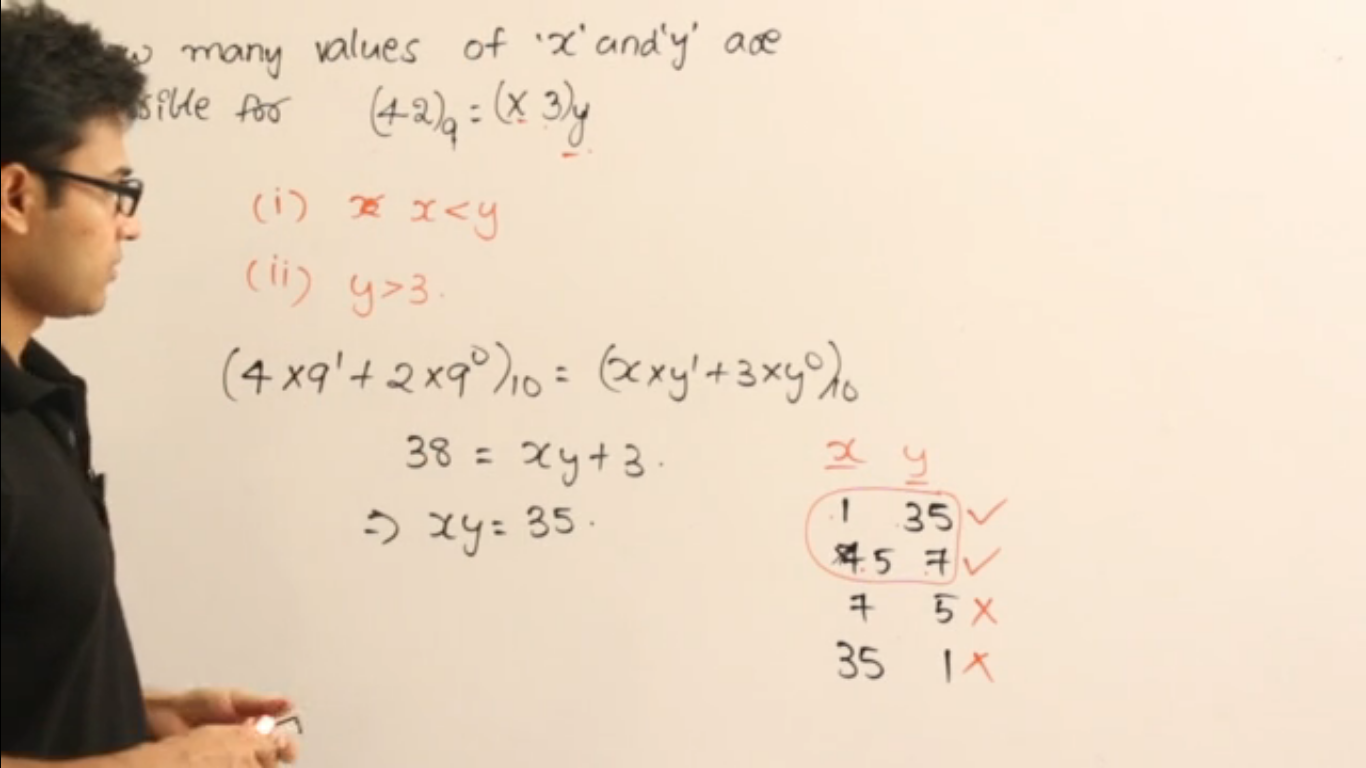 many values of 'x' and 'y' are
sible for (42)₉ = (x 3)y
(i) x < y
(ii) y > 3.
(4 × 9¹ + 2 × 9⁰)₁₀ = (x × y¹ + 3 × y⁰)₁₀
38 = xy + 3.
⇒ xy = 35.
x y
1 35 ✓
5 7 ✓
7 5 ×
35 1 ×